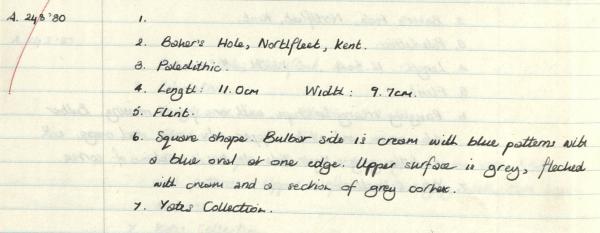 A. 24/3 '80
1.
2. Baker's Hole, Northfleet, Kent.
3. Paleolithic.
4. Length: 11.0cm Width: 9.7cm.
5. Flint.
6. Square shape. Bulbar side is cream with blue patterns with
a blue oval at one edge. Upper surface is grey, flecked
with cream and a section of grey cortex.
7. Yates Collection.